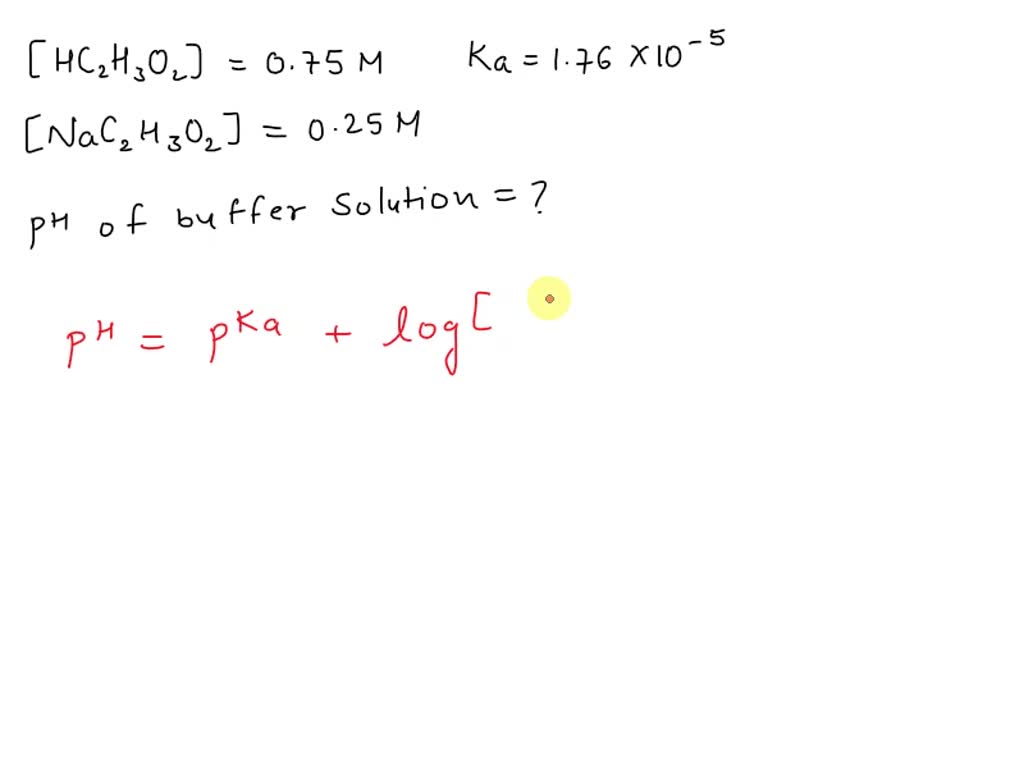 [HC₂H₃O₂] = 0.75 M Ka = 1.76 ×10⁻⁵
[NaC₂H₃O₂] = 0.25 M
pH of buffer solution = ?
pH = pKa + log [